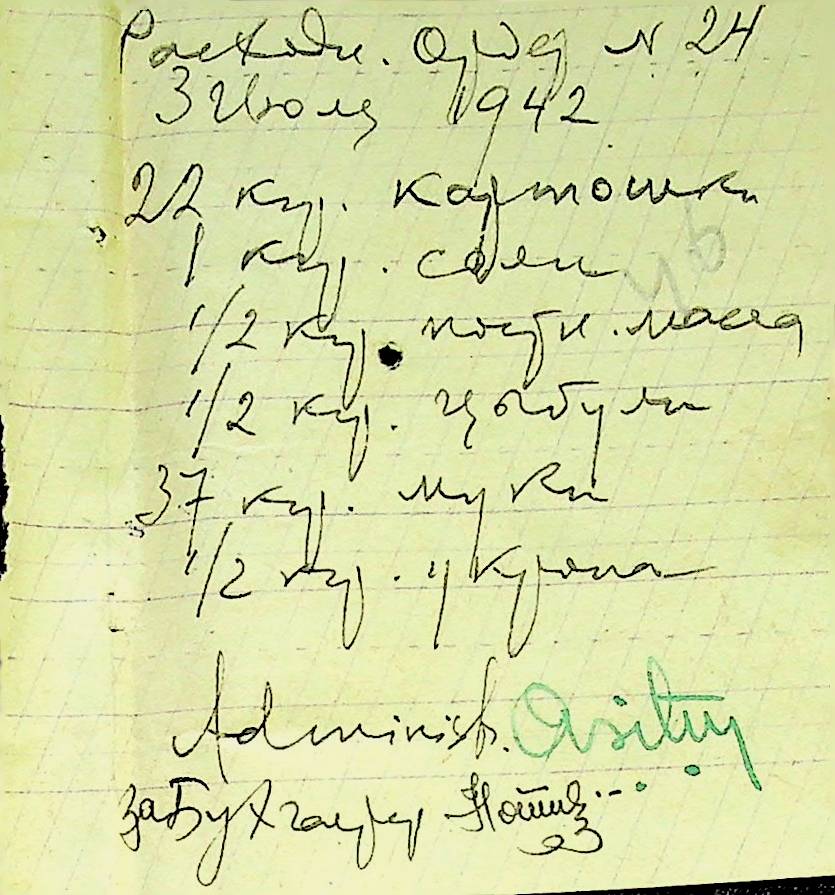 Расходн. Ордер N 24
3 Июля 1942
22 кгр. картошки
1 кгр. соли
1/2 кгр. постн. масла
1/2 кгр. цыбули
37 кгр. муки
1/2 кгр. укропа
Administr.
за Бухгалтер